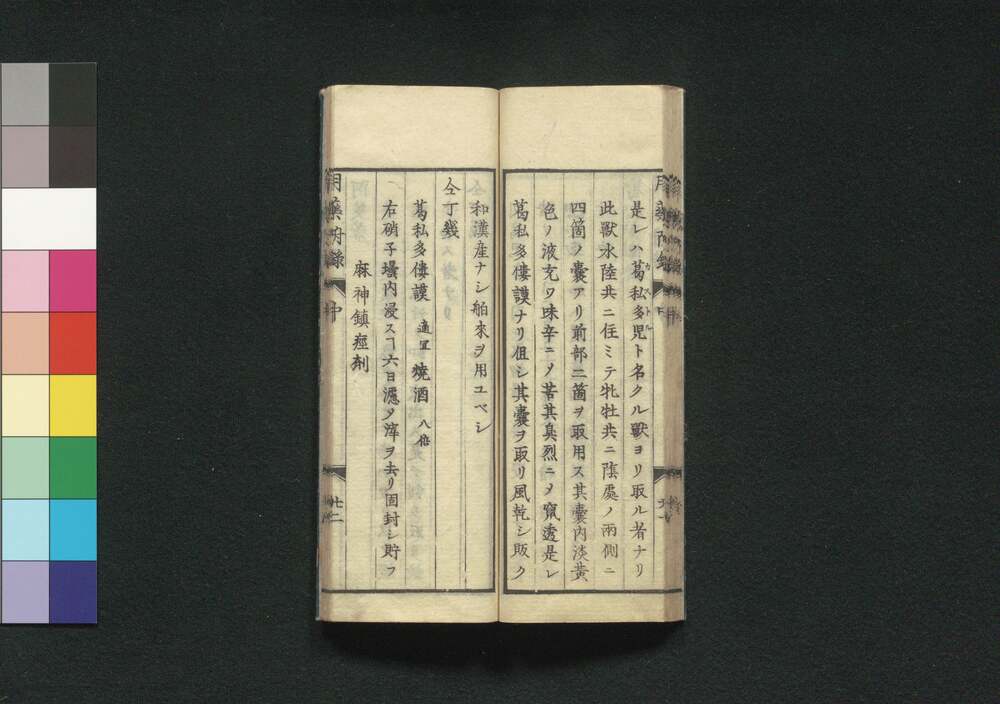 是レハ葛私多児ト名クル獸ヨリ取ル者ナリ
カストル
此獸水陸共ニ住ミテ牝牡共ニ陰處ノ兩側ニ
四箇ノ囊アリ前部二箇ヲ取用ス其囊内淡黄
色ノ液充ツ味辛ニ〆苦其臭烈ニ〆竄透是レ
葛私多僂謨ナリ但シ其囊ヲ取リ風乾シ販ク
和漢産ナシ舶來ヲ用ユベシ
仝丁幾
葛私多僂謨 適宜 焼酒 八倍
右硝子壜内浸スヿ六日濾〆滓ヲ去リ固封シ貯フ
麻神鎮痙剤
廿二